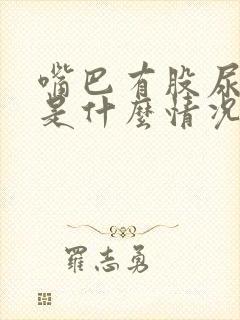 嘴巴有股尿
是什麼情況
羅志勇